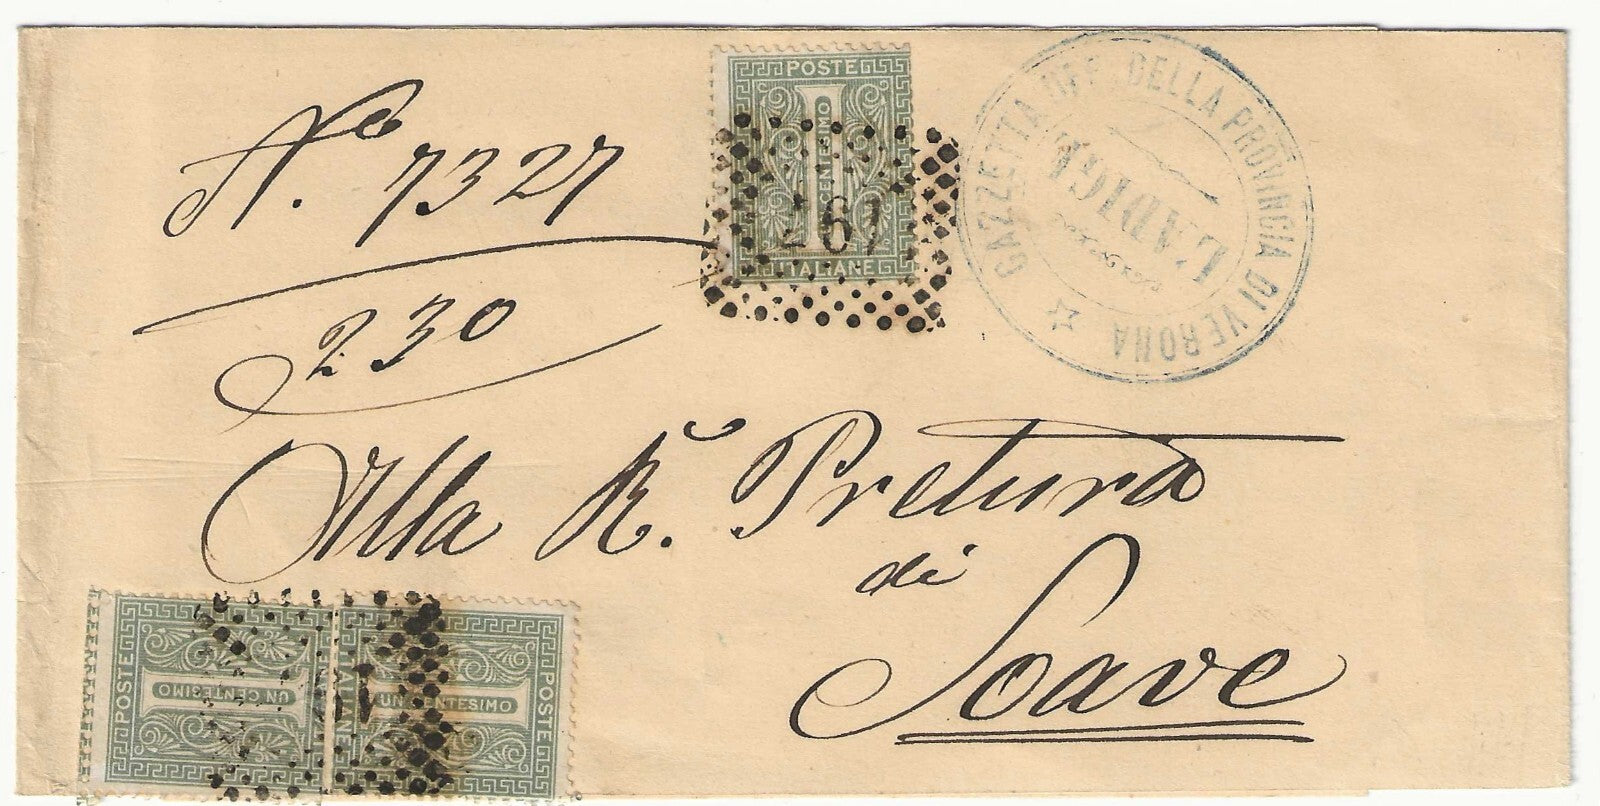 No. 7327
230
POSTE
UN CENTESIMO
ITALIANE
261
GAZZETTA UFF DELLA PROVINCIA DI VERONA
Alla R.a Pretura
di
Soave
POSTE
UN CENTESIMO
ITALIANE
UN CENTESIMO
POSTE